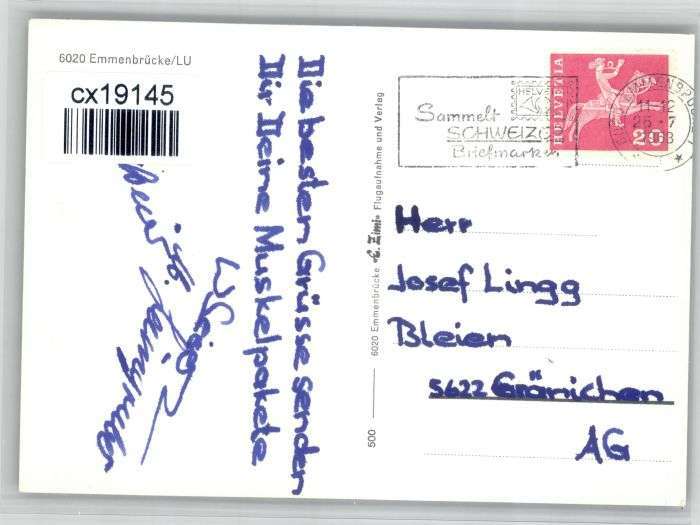 6020 Emmenbrücke/LU
cx19145
Die besten Grüsse senden
Dir Deine Muskelpakete
500
6020 Emmenbrücke
Flugaufnahme und Verlag
Sammelt
SCHWEIZ
Briefmarken
HELVETIA
HELVETIA
20
Herr
Josef Lingg
Bleien
5622 Gränichen
AG